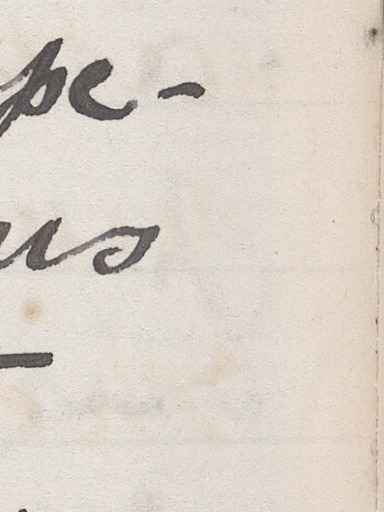 pe-
us